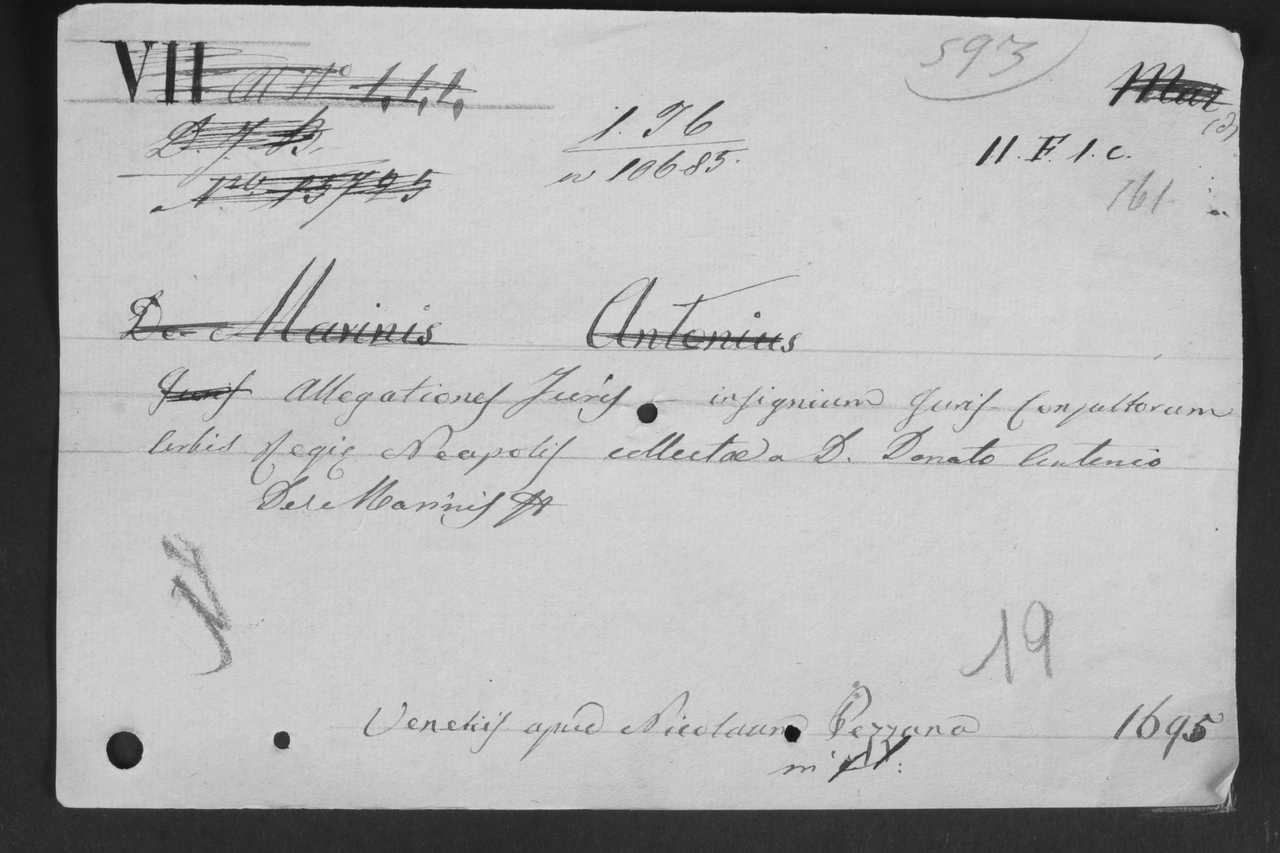 VII A N° 1,1,1, 593 Mar
D. J. B. 1. 36 11. F. 1. c.
N° 15725 n 10685. 761
De Marinis Antonius
Juris Allegationes Juris insignium Juris Consultorum
Urbis Regie Neapolis collectae a D. Donato Antonio
De Marinis
19
Venetiis apud Nicolaum Pezzana 1695
in